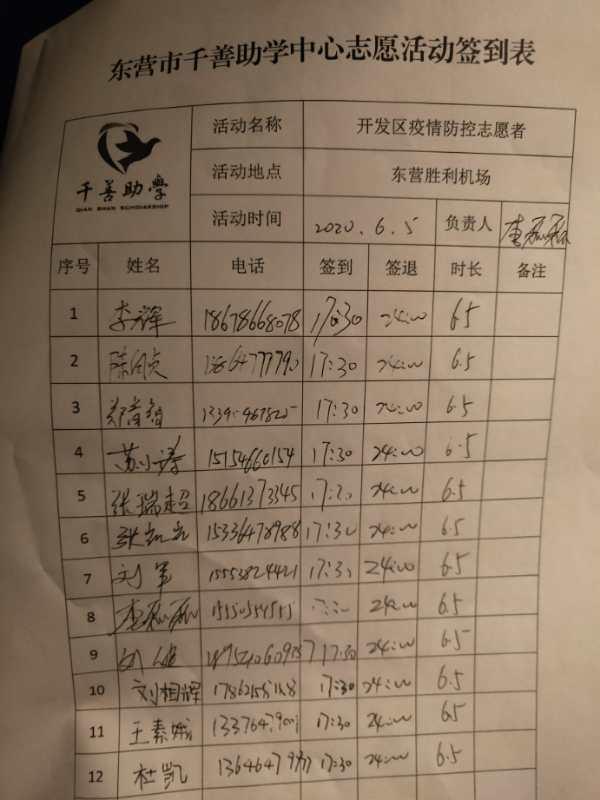 东营市千善助学中心志愿活动签到表
千善助學
QIAN SHAN SCHOLARSHIP
活动名称 开发区疫情防控志愿者
活动地点 东营胜利机场
活动时间 2020.6.5 负责人
序号 姓名 电话 签到 签退 时长 备注
1 李辉 18678668078 17:30 24:00 6.5
2 17:30 24:00 6.5
3 17:30 24:00 6.5
4 苏小涛 15154660154 17:30 24:00 6.5
5 张瑞超 18661373345 17:30 24:00 6.5
6 15336478988 17:30 24:00 6.5
7 刘军 15553824421 17:30 24:00 6.5
8 24:00 6.5
9 17:30 24:00 6.5
10 刘相辉 17:30 24:00 6.5
11 王素娥 17:30 24:00 6.5
12 杜凯 17:30 24:00 6.5